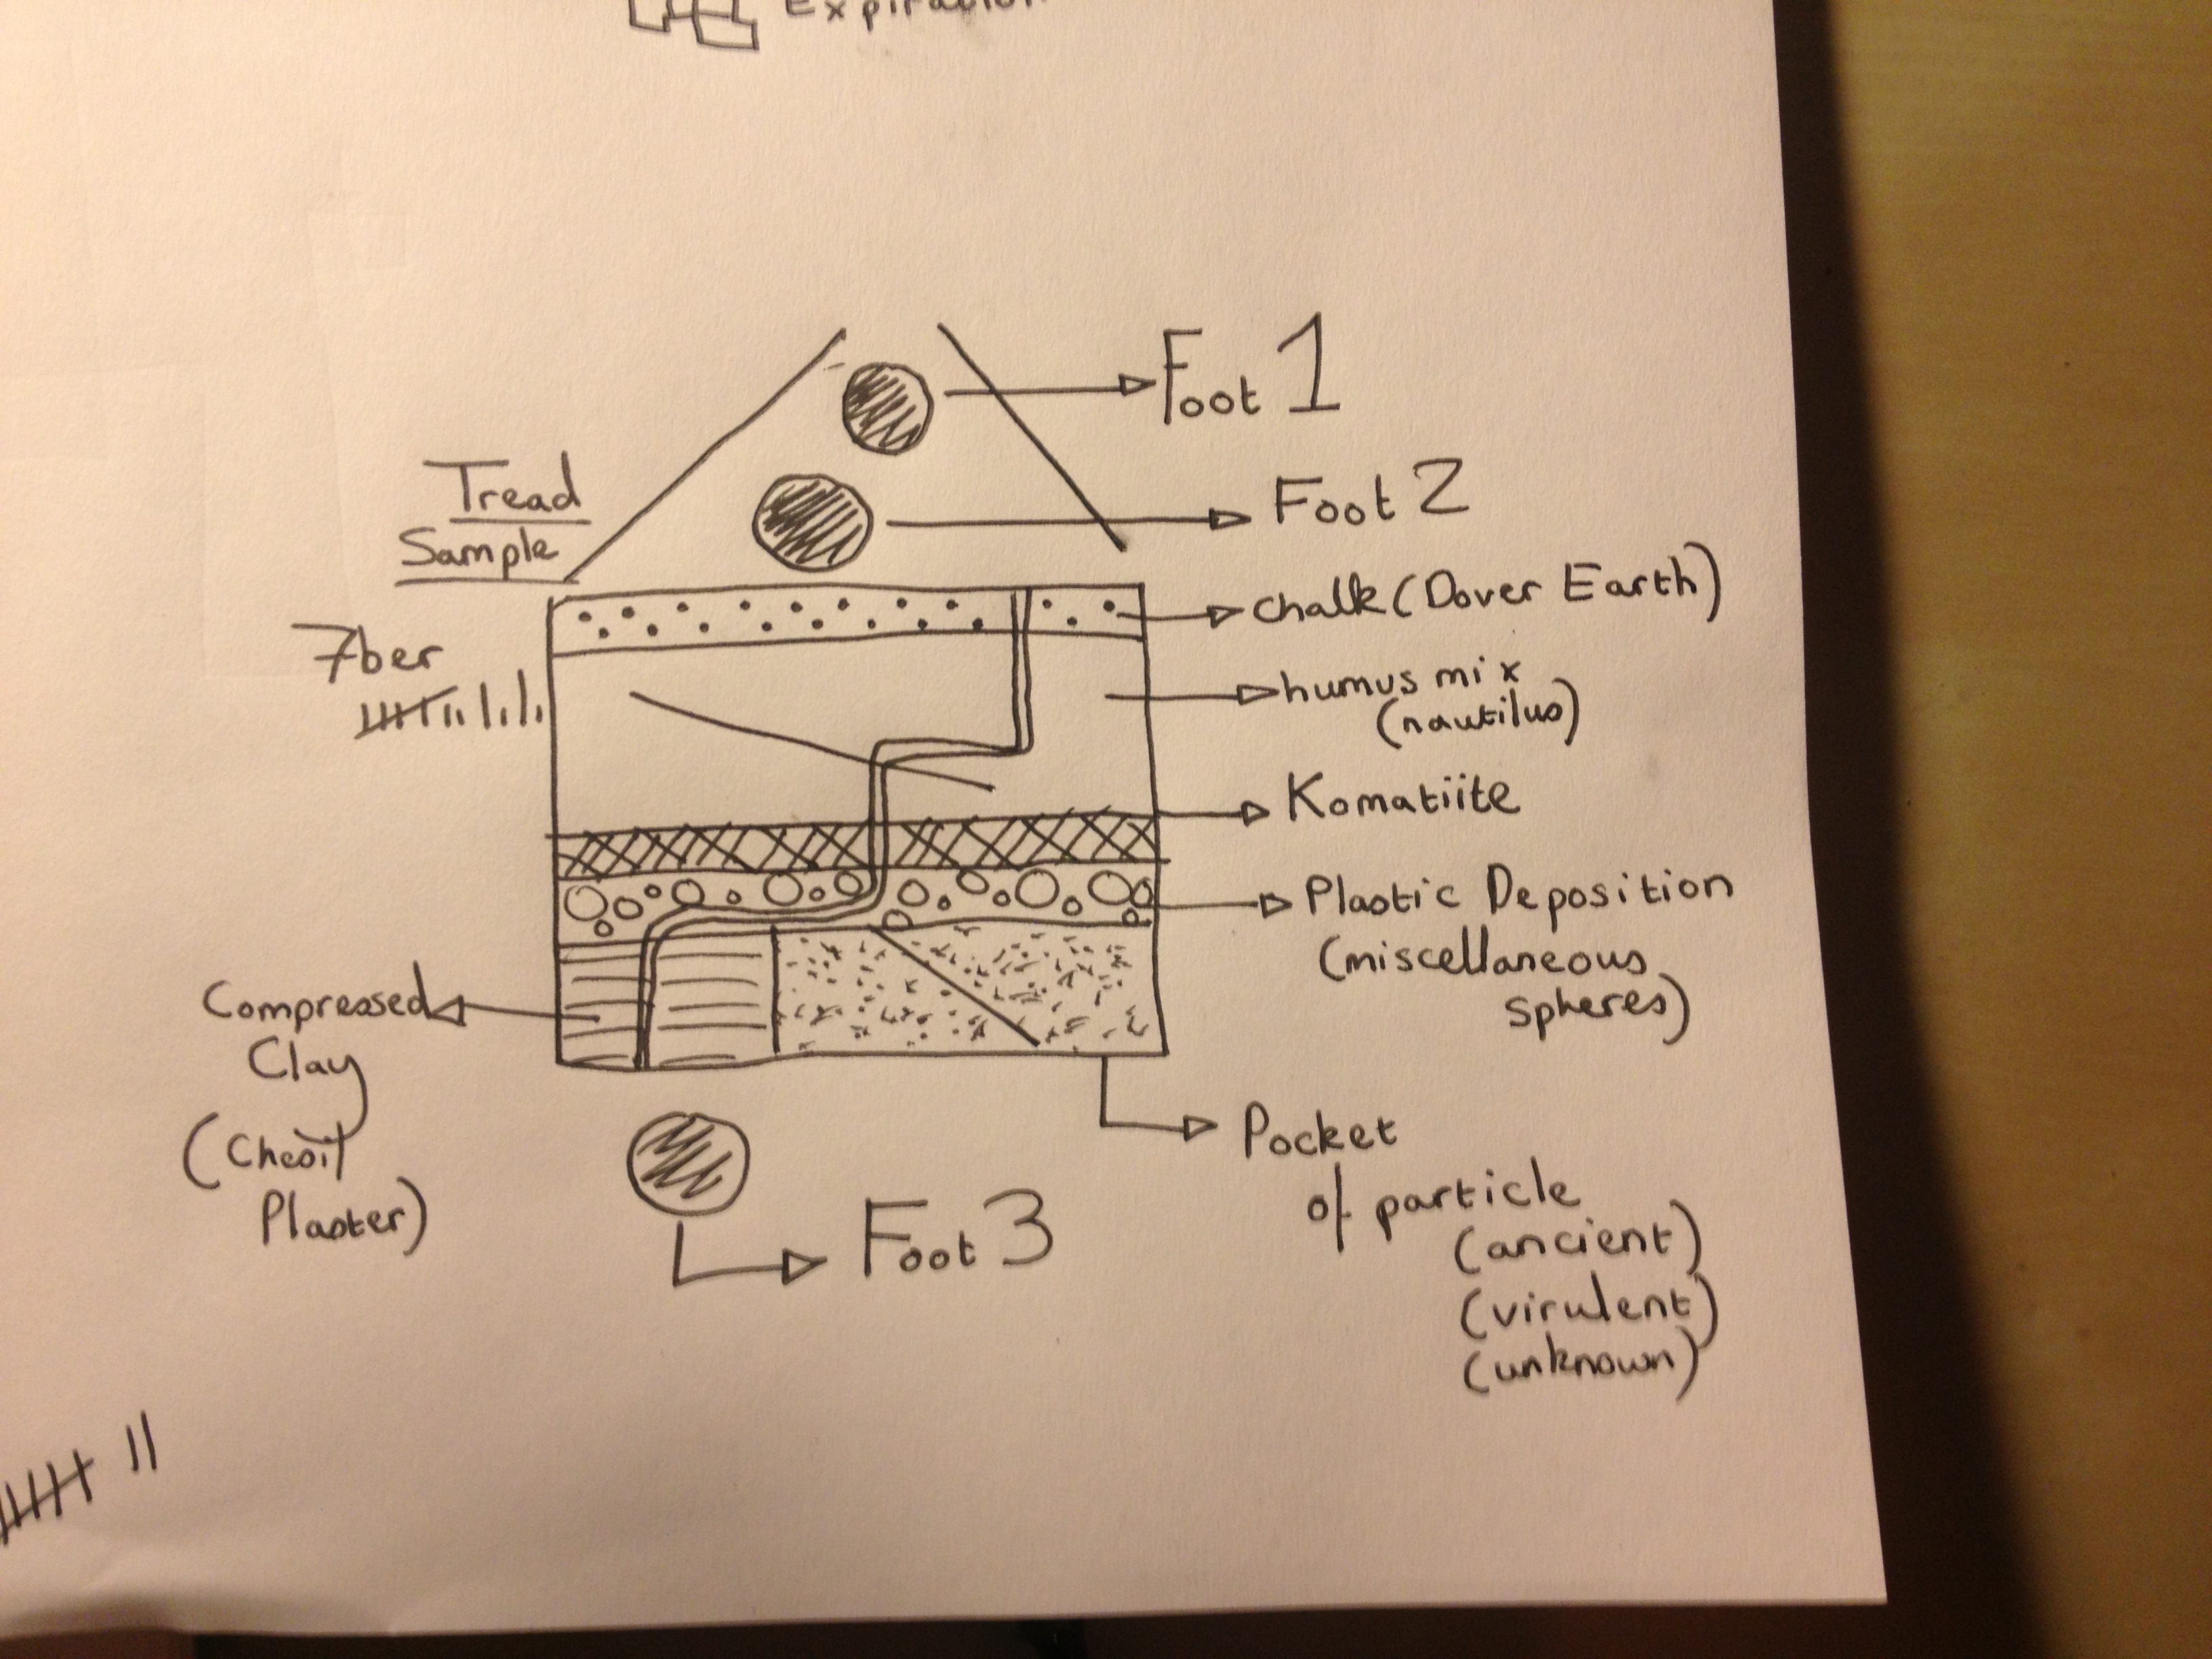 Expiration
Foot 1
Tread
Sample
Foot 2
chalk (Dover Earth)
7ber
humus mix
(nautilus)
Komatiite
Plastic Deposition
(miscellaneous
spheres)
Compressed
Clay
(Chesil
Plaster)
Pocket
of particle
(ancient)
(virulent)
(unknown)
Foot 3